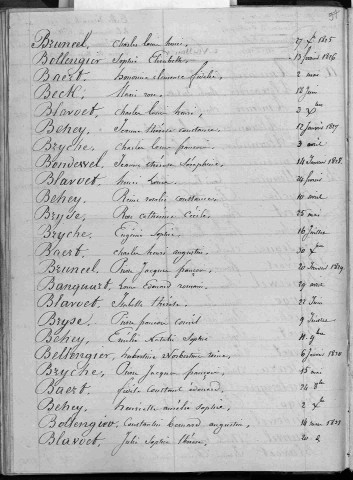 Bruneel, Charles Louis henri 27 Xbre 1815
Bollengier Sophie Elisabeth 13 fevrier 1816
Baert, fidelle, 2 mai
Beck, Marie rose, 12 Juin
Blavoet, Charles Louis henri, 3 Xbre
Behey, Jeanne thérèse constance 12 Janvier 1817
Bryche, Charles Louis françois 3 avril
Bondervel, Jeanne thérèse Josephine, 14 Janvier 1818.
Blavoet, henri Louis 24 fevrier
Behey, Reine rosalie constance, 10 avril
Bryse, Rose catherine Cecile, 25 mai
Bryche, Eugénie Sophie 16 Juillet
Baert, charles henri augustin, 30 Xbre
Bruneel, Pierre Jacques françois, 20 Janvier 1819
Banquart, Louis Edouard romain, 29 avril
Blavoet, Isabelle thérèse, 22 Juin
Bryse, Pierre françois 9 Juillet
Behey, Emélie Natalie Sophie 11 9bre
Bellengier, Norbertine 6 fevrier 1820
Bryche, Pierre Jacques françois, 15 mai
Baert, fidele constant édouard, 24 8bre
Behey, henriette amélie sophie, 2 Xbre
Bollengier, Constantin Bernard augustin, 16 mars 1821
Blavoet, Julie Sophie thérèse, 20